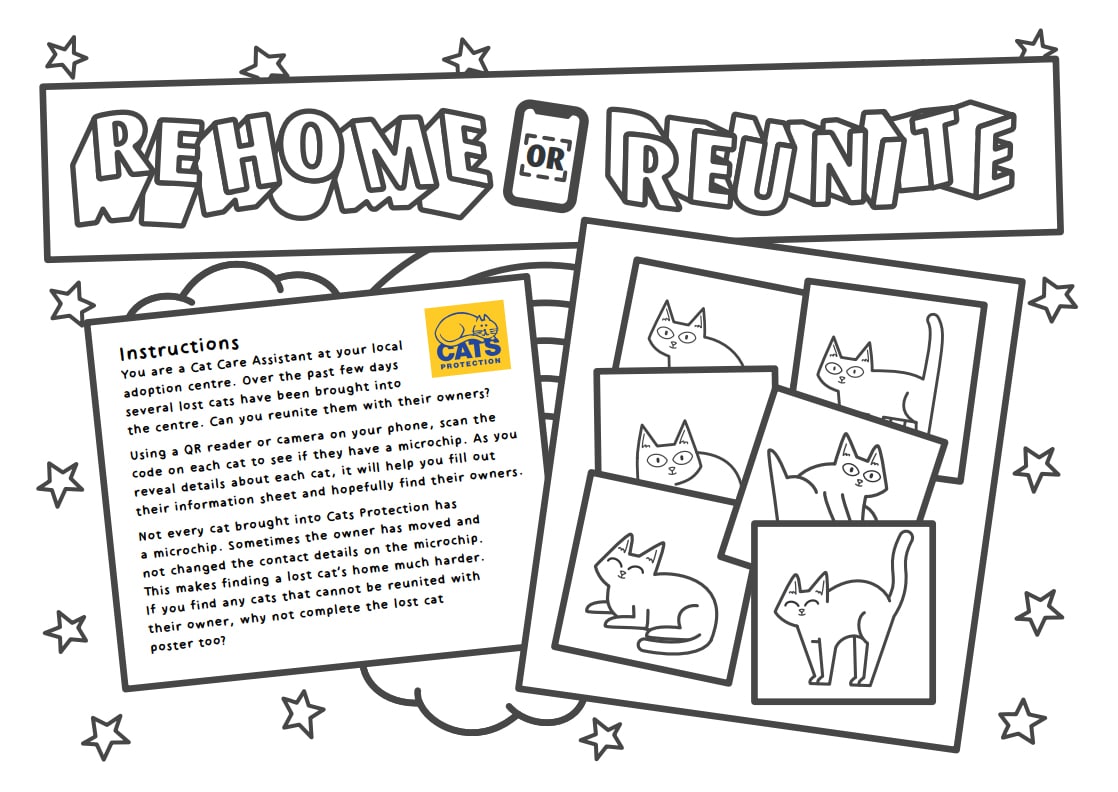 REHOME OR REUNITE
Instructions
You are a Cat Care Assistant at your local
adoption centre. Over the past few days
several lost cats have been brought into
the centre. Can you reunite them with their owners?
Using a QR reader or camera on your phone, scan the
code on each cat to see if they have a microchip. As you
reveal details about each cat, it will help you fill out
their information sheet and hopefully find their owners.
Not every cat brought into Cats Protection has
a microchip. Sometimes the owner has moved and
not changed the contact details on the microchip.
This makes finding a lost cat's home much harder.
If you find any cats that cannot be reunited with
their owner, why not complete the lost cat
poster too?
CATS
PROTECTION